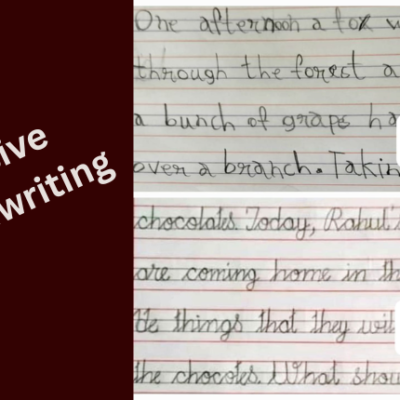 ive
writing
One afternoon a fox w
through the forest a
a bunch of graps ha
over a branch. Takin
chocolates. Today, Rahul's
are coming home in th
He things that they will
the chocotes. What shou